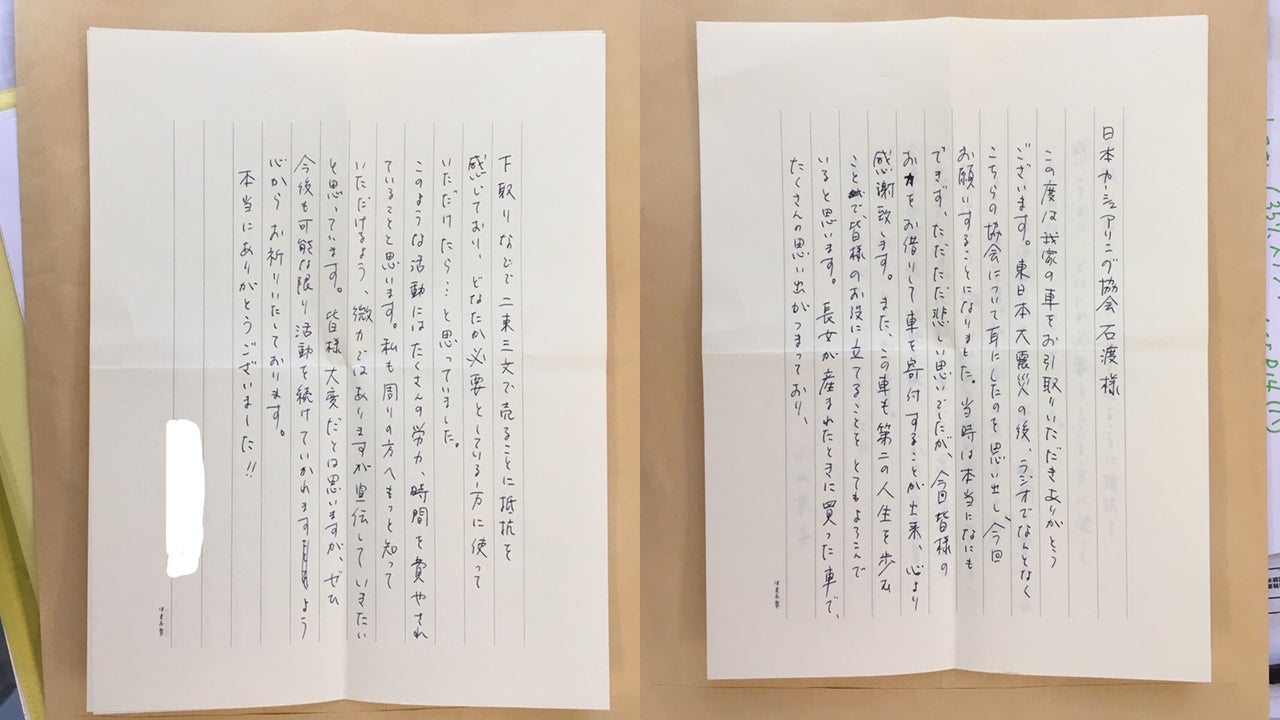 日本カーシェアリング協会 石渡 様
この度は我家の車をお引取りいただきありがとう
ございます。東日本大震災の後、ラジオでなんとなく
こちらの協会について耳にしたのを思い出し、今回
お願いすることになりました。当時は本当になにも
できず、ただただ悲しい思いでしたが、今回皆様の
お力をお借りして車を寄付することが出来、心より
感謝致します。また、この車も第二の人生を歩む
ことで、皆様のお役に立てることを とてもよろこんで
いると思います。長女が産まれたときに買った車で、
たくさんの思い出がつまっており、
下取りなどで二束三文で売ることに抵抗を
感じており、どなたか必要としている方に使って
いただけたら…と思っていました。
このような活動にはたくさんの労力、時間を費やされ
ていることと思います。私も周りの方へもっと知って
いただけるよう、微力ではありますが宣伝していきたい
と思っています。皆様、大変だとは思いますが、ぜひ
今後も可能な限り活動を続けていかれますよう
心から お祈りいたしております。
本当にありがとうございました!!